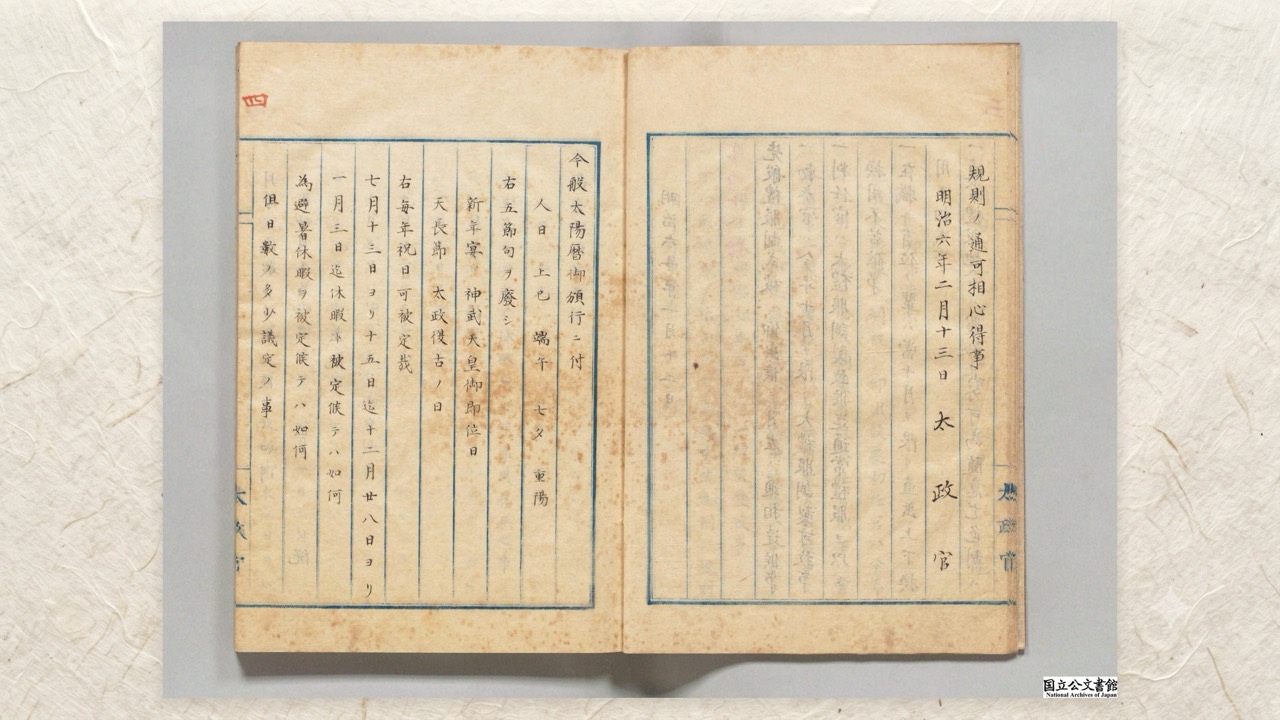 規則ノ通可相心得事
明治六年二月十三日 太政官
太政官
今般太陽暦御頒行ニ付
人日 上巳 端午 七夕 重陽
右五節句ヲ廃シ
新年宴 神武天皇御即位日
天長節 太政復古ノ日
右毎年祝日可被定哉
七月十三日ヨリ十五日迄十二月廿八日ヨリ
一月三日迄休暇ト被定候テハ如何
為避暑休暇ヲ被定候テハ如何
但日数ノ多少議定ノ事
太政官
四
国立公文書館
National Archives of Japan